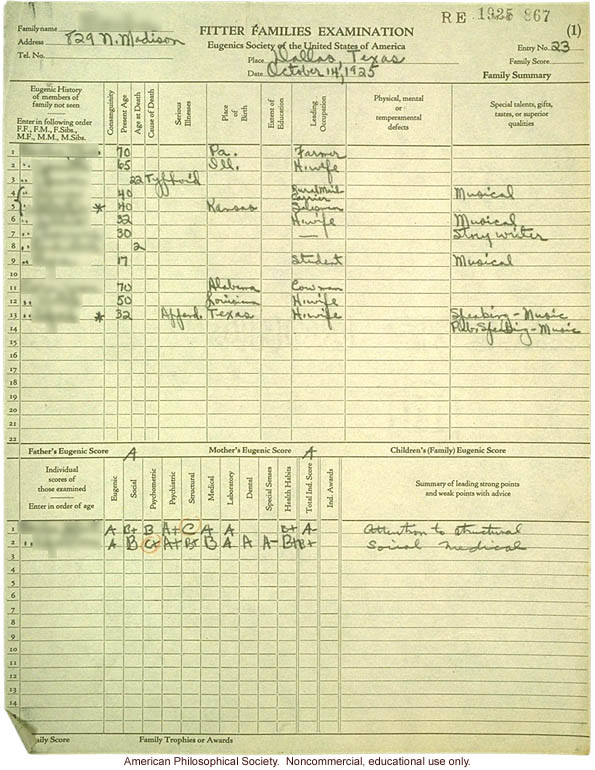 RE 1925 867
Family name
FITTER FAMILIES EXAMINATION
(1)
Address 829 N. Madison
Eugenics Society of the United States of America
Entry No. 23
Tel. No.
Place Dallas, Texas
Family Score
Date October 14, 1925
Family Summary
Eugenic History of members of family not seen
Enter in following order F.F., F.M., F.Sibs., M.F., M.M., M.Sibs.
Consanguinity
Present Age
Age at Death
Cause of Death
Serious Illnesses
Place of Birth
Extent of Education
Leading Occupation
Physical, mental or temperamental defects
Special talents, gifts, tastes, or superior qualities
1 70 Pa. Farmer
2 65 Ill. H.wife
3 22 Typhoid
4 40 Rural Mail Carrier Musical
5 * 40 Kansas Salesman
6 32 H.wife Musical
7 30 — Story writer
8 2
9 17 Student Musical
10
11 70 Alabama Cowman
12 50 Louisiana H.wife
13 * 32 Append. Texas H.wife Speaking - Music
14 Pub. Speaking - Music
15
16
17
18
19
20
21
22
Father's Eugenic Score A
Mother's Eugenic Score A
Children's (Family) Eugenic Score
Individual scores of those examined
Enter in order of age
Eugenic
Social
Psychometric
Psychiatric
Structural
Medical
Laboratory
Dental
Special Senses
Health Habits
Total Ind. Score
Ind. Awards
Summary of leading strong points and weak points with advice
1 A B+ B A+ C A A B+ A- Attention to structural
2 A B C+ A+ B+ B A A A- B+ B+ Social medical
3
4
5
6
7
8
9
10
11
12
13
14
ily Score
Family Trophies or Awards
American Philosophical Society. Noncommercial, educational use only.